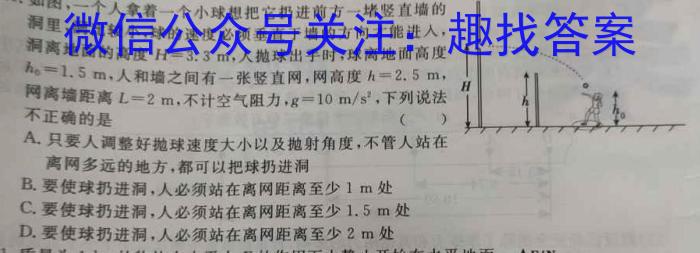 如图,一个人拿着一个小球想把它扔进前方一堵竖直墙的
洞里
球的速度必须垂直于墙的方向才能进入,
微信公众号关注:趣找答案
洞离地面的高度 H=3.3 m,人抛球出手时,球离地面高度
h₀=1.5 m,人和墙之间有一张竖直网,网高度 h=2.5 m,
网离墙距离 L=2 m,不计空气阻力,g=10 m/s²,下列说法
不正确的是 ( )
A. 只要人调整好抛球速度大小以及抛射角度,不管人站在
离网多远的地方,都可以把球扔进洞
B. 要使球扔进洞,人必须站在离网距离至少 1 m 处
C. 要使球扔进洞,人必须站在离网距离至少 1.5 m 处
D. 要使球扔进洞,人必须站在离网距离至少 2 m 处
H
h
h₀